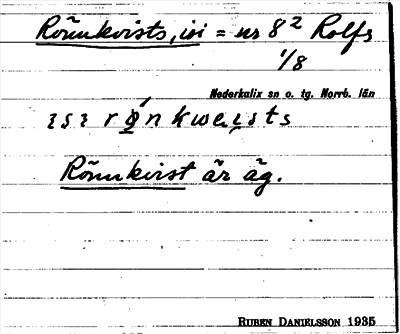 Rönnkvists, isi = nr 8² Rolfs
1/8
Nederkalix sn o. tg. Norrb. län
ɩsɩ rǿnkweɩsts
Rönnkvist är äg.
RUBEN DANIELSSON 1935